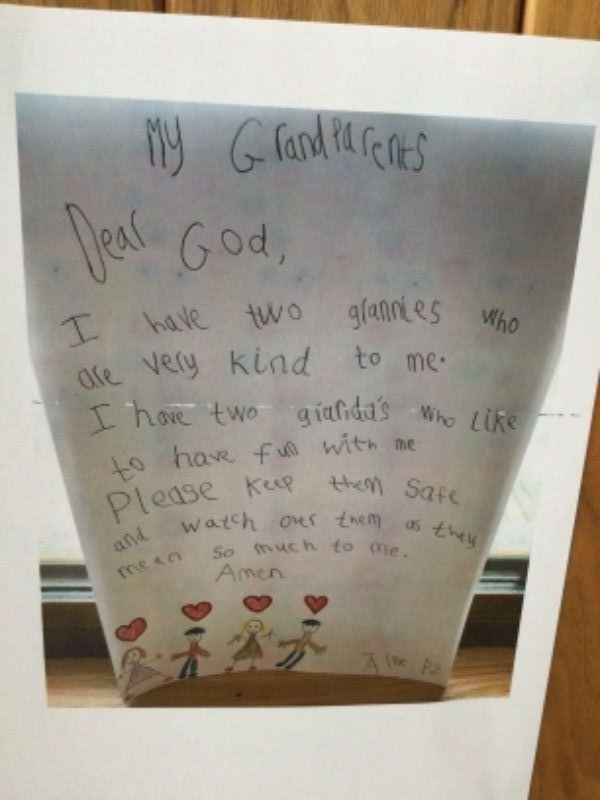 My Grandparents
Dear God,
I have two grannies who
are very kind to me.
I have two granda's who like
to have fun with me
Please keep them safe
and watch over them as they
mean so much to me.
Amen
P2